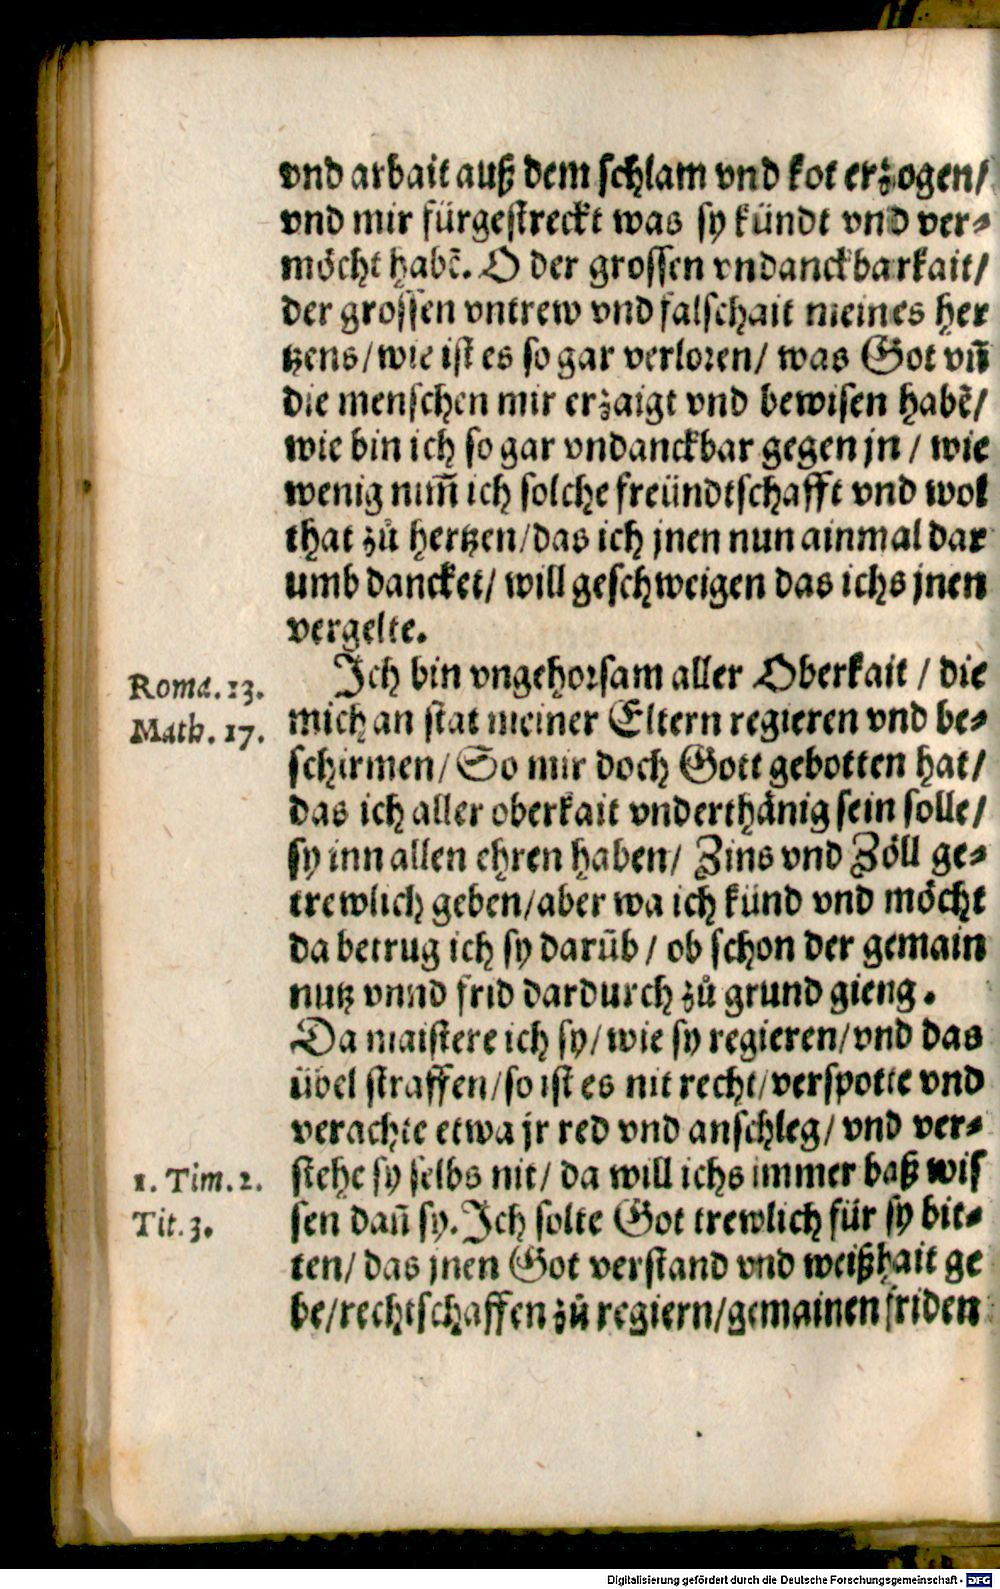 vnd arbait auß dem schlam vnd kot erzogen/
vnd mir fürgestreckt was sy kündt vnd ver⸗
möcht habẽ. O der grossen vndanckbarkait/
der grossen vntrew vnd falschait meines her
tzens/wie ist es so gar verloren/ was Got vñ
die menschen mir erzaigt vnd bewisen habẽ/
wie bin ich so gar vndanckbar gegen jn / wie
wenig nim̃ ich solche freündtschafft vnd wol
that zů hertzen/das ich jnen nun ainmal dar
umb dancket/ will geschweigen das ichs jnen
vergelte.
Ich bin vngehorsam aller Oberkait / die
Roma. 13.
mich an stat meiner Eltern regieren vnd be⸗
Math. 17.
schirmen/ So mir doch Gott gebotten hat/
das ich aller oberkait vnderthänig sein solle/
sy inn allen ehren haben/ Zins vnd Zöll ge⸗
trewlich geben/aber wa ich künd vnd möcht
da betrug ich sy darũb / ob schon der gemain
nutz vnnd frid dardurch zů grund gieng.
Da maistere ich sy/ wie sy regieren/vnd das
übel straffen/so ist es nit recht/verspotte vnd
verachte etwa jr red vnd anschleg/ vnd ver⸗
stehe sy selbs nit/ da will ichs immer baß wis
1. Tim. 2.
sen dañ sy. Ich solte Got trewlich für sy bit⸗
Tit. 3.
ten/ das jnen Got verstand vnd weißhait ge
be/rechtschaffen zů regiern/gemainen friden
Digitalisierung gefördert durch die Deutsche Forschungsgemeinschaft - DFG